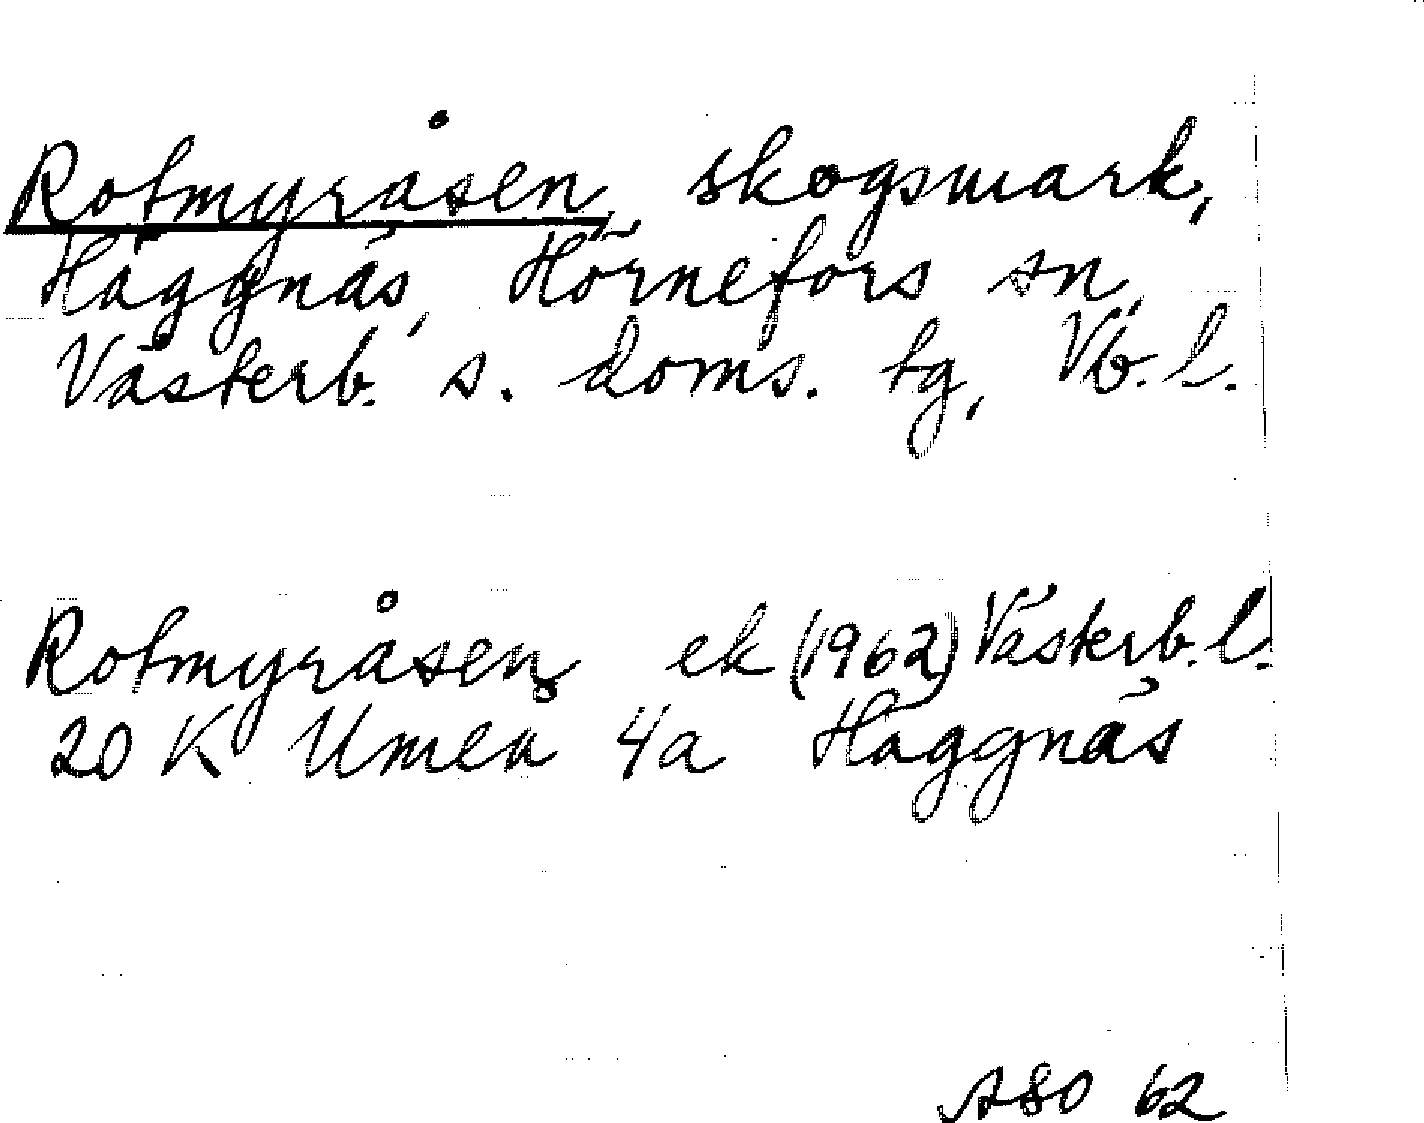 Rotmyråsen, skogsmark,
Häggnäs, Hörnefors sn,
Västerb. s. doms. tg, Vb. l.
Rotmyråsen ek (1962) Västerb. l.
20 K Umeå 4a Häggnäs
ASO 62